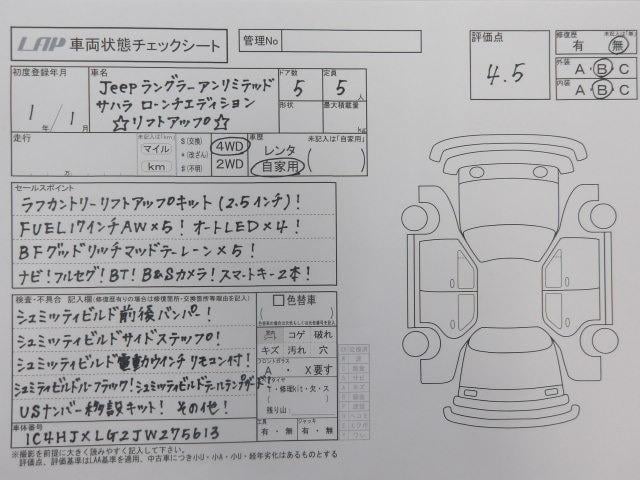 LAP 車両状態チェックシート
管理No
評価点
4.5
修復歴 未記入は「無」
有 無
外装 A・B・C
内装 A・B・C
初度登録年月
1年/1月
車名
Jeepラングラーアンリミテッド
サハラ ローンチエディション
☆リフトアップ☆
ドア数 5
定員 5人
形状
最大積載量
kg
走行 未記入は「km」
マイル
km
万
$(交換)
*(改ざん)
#(不明)
4WD
2WD
車歴 未記入は「自家用」
レンタ
自家用
セールスポイント
ラフカントリーリフトアップキット(2.5インチ)!
FUEL17インチAW×5! オートLED×4!
BFグッドリッチマッドテレーン×5!
ナビ!フルセグ!BT!B&Sカメラ!スマートキー2本!
検査・不具合 記入欄(修復歴有りの場合は修復箇所・交換箇所等理由を記入)
シュミッティビルド前後バンパー!
シュミッティビルドサイドステップ!
シュミッティビルド電動ウインチ リモコン付!
シュミッティビルドルーフラック!シュミッティビルドテールランプガード!
USナンバー移設キット! その他!
車体番号
1C4HJXLG2JW275613
色替車
コゲ 破れ
キズ 汚れ 穴
フロントガラス
A ・ X要す
タイヤ
T・修理kit・欠・ス
残り山
工具 有・無
ジャッキ 有・無
※撮影を前提に大きく読みやすく記入して下さい
評価点、評価基準はLAA基準を適用、中古車につき小U・小A・小U・経年劣化はあるものとする